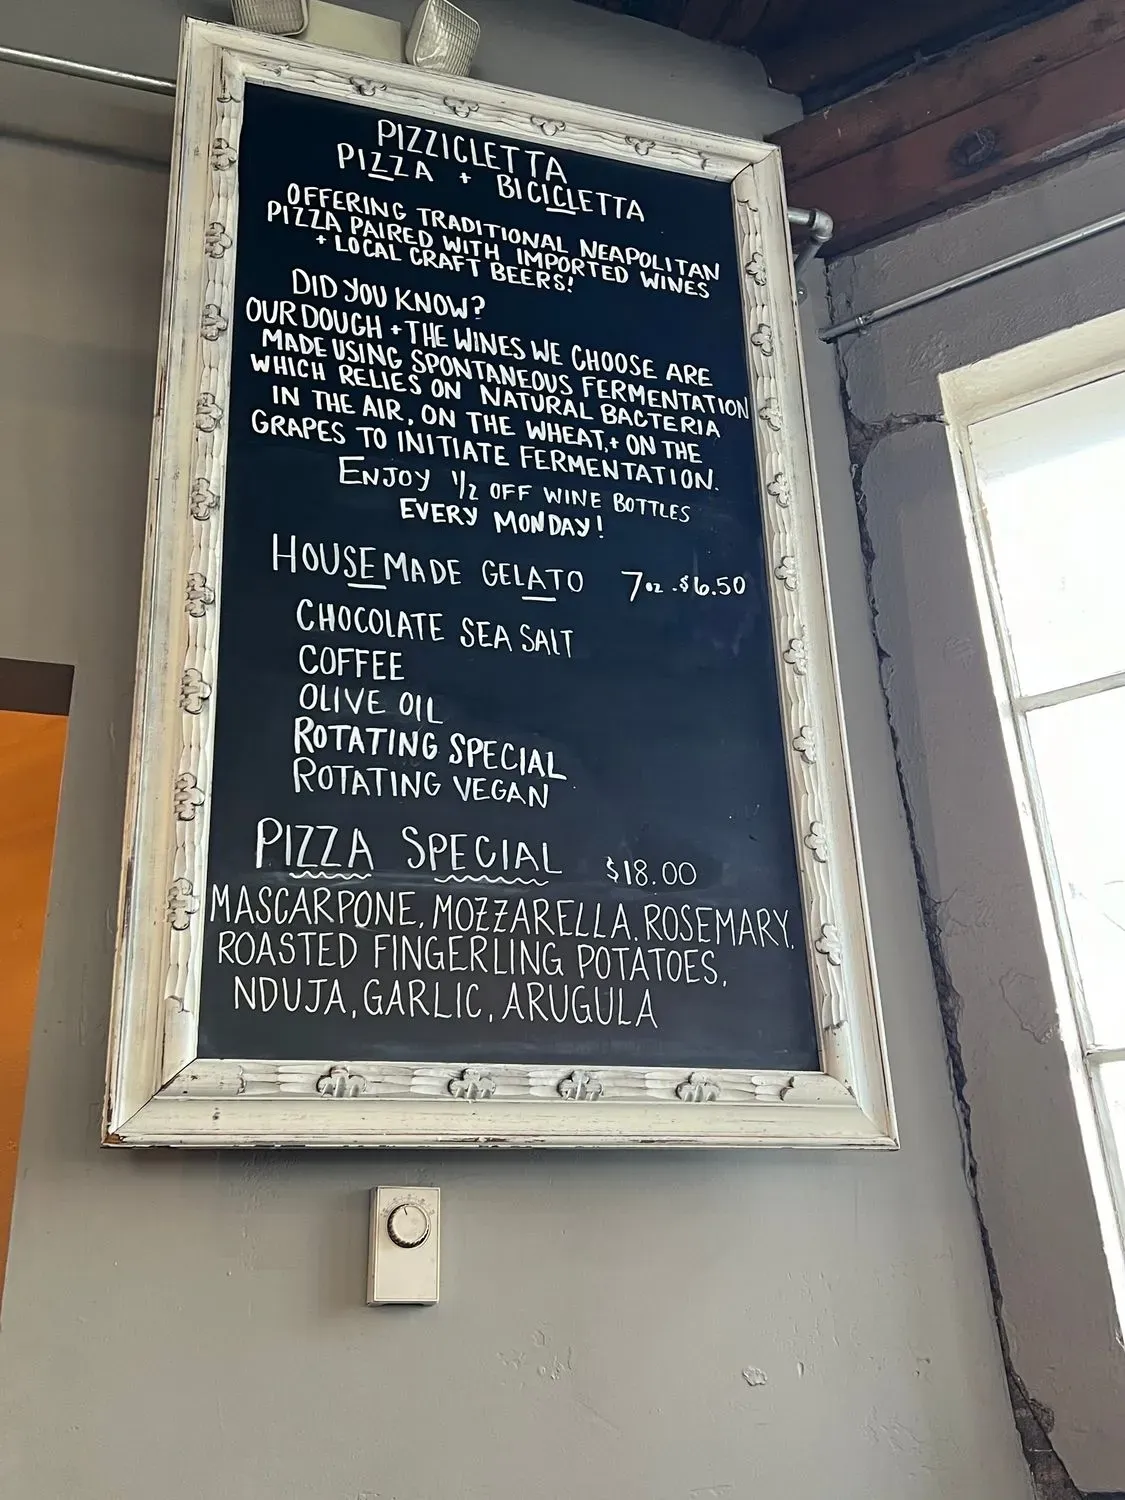 PIZZICLETTA
PIZZA + BICICLETTA
OFFERING TRADITIONAL NEAPOLITAN
PIZZA PAIRED WITH IMPORTED WINES
+ LOCAL CRAFT BEERS!
DID YOU KNOW?
OUR DOUGH + THE WINES WE CHOOSE ARE
MADE USING SPONTANEOUS FERMENTATION
WHICH RELIES ON NATURAL BACTERIA
IN THE AIR, ON THE WHEAT, + ON THE
GRAPES TO INITIATE FERMENTATION.
ENJOY 1/2 OFF WINE BOTTLES
EVERY MONDAY!
HOUSEMADE GELATO 7oz - $6.50
CHOCOLATE SEA SALT
COFFEE
OLIVE OIL
ROTATING SPECIAL
ROTATING VEGAN
PIZZA SPECIAL $18.00
MASCARPONE, MOZZARELLA, ROSEMARY,
ROASTED FINGERLING POTATOES,
NDUJA, GARLIC, ARUGULA